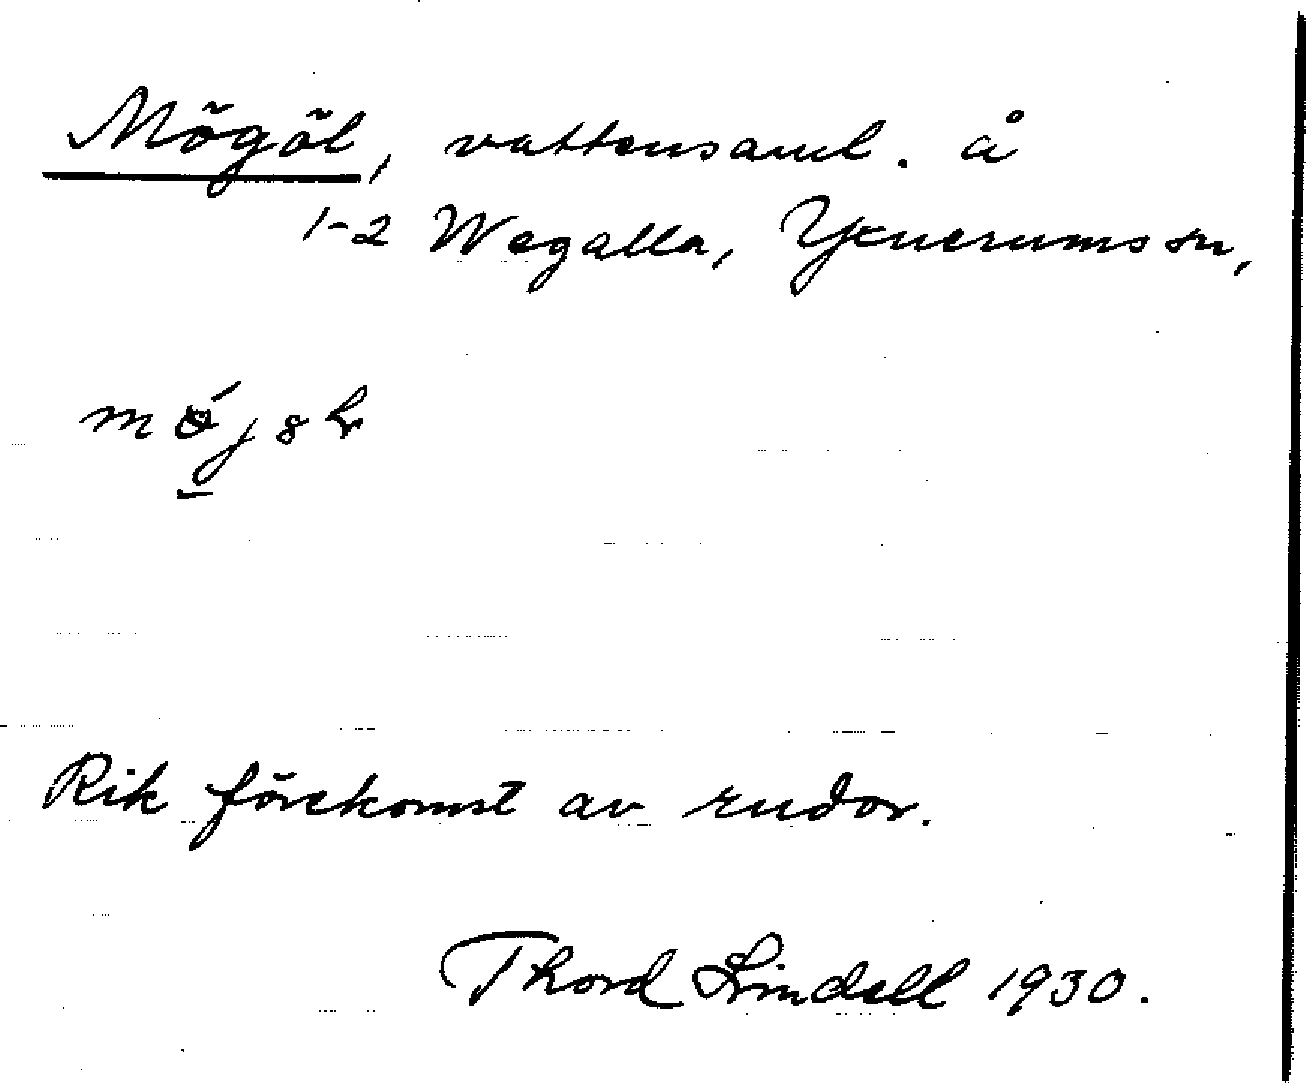 Mögöl, vattensaml. å
1-2 Wegalla, Yxnerums sn,
Rik förekomst av rudor.
Thord Lindell 1930.